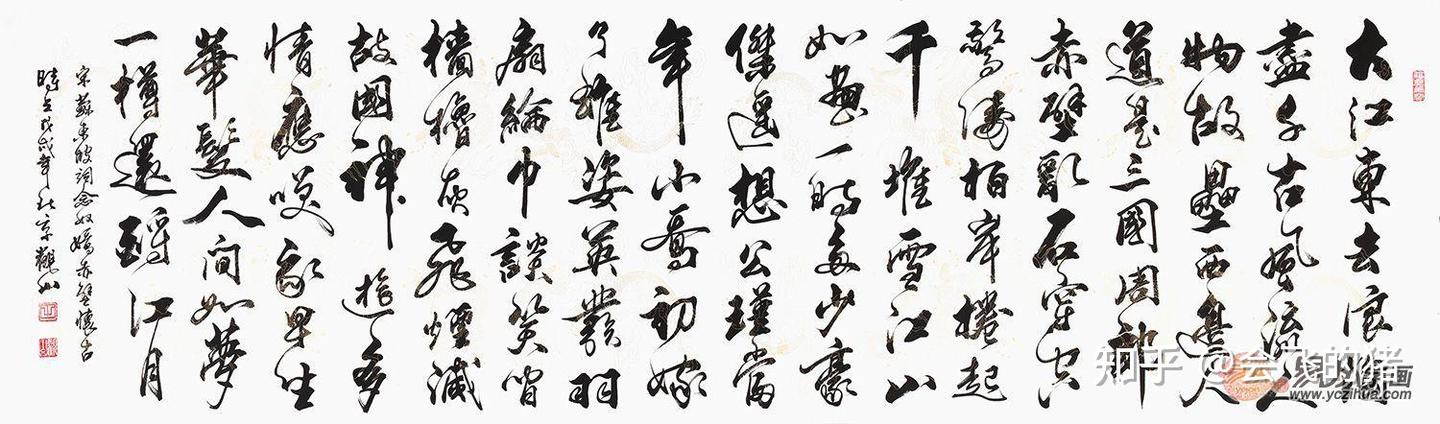 大江東去浪淘
盡千古風流人
物故壘西邊人
道是三國周郎
赤壁亂石穿空
驚濤拍岸捲起
千堆雪江山
如畫一時多少豪
傑遥想公瑾當
年小喬初嫁
了雄姿英發羽
扇綸巾談笑間
檣櫓灰飛煙滅
故國神遊多
情應笑我早生
華髮人間如夢
一樽還酹江月
宋蘇東坡詞念奴嬌赤壁懷古
戊戌年
知乎 @会飞的猪
www.yczihua.com